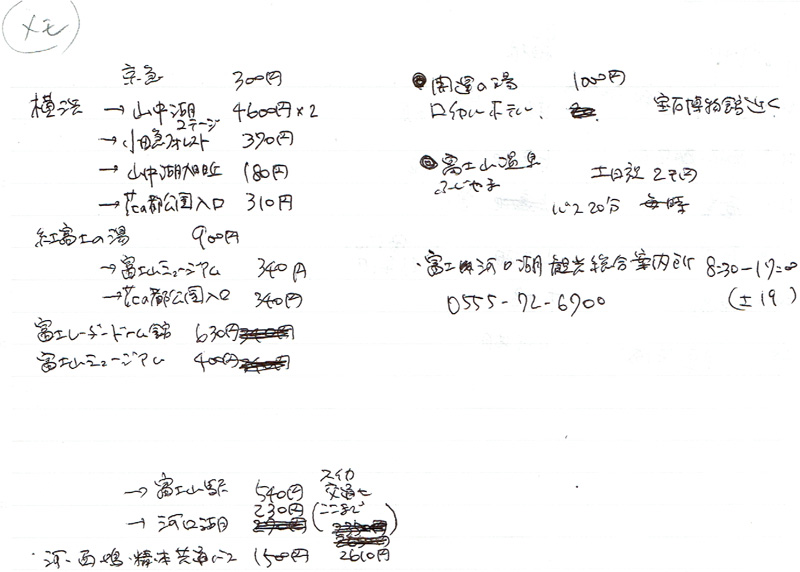 メモ
京急 300円
横浜 → 山中湖 4600円×2
→ 小田急フォレストコテージ 370円
→ 山中湖旭丘 180円
→ 花の都公園入口 310円
紅富士の湯 900円
→ 富士山ミュージアム 340円
→ 花の都公園入口 340円
富士レーダードーム館 630円
富士山ミュージアム 400円
→ 富士山駅 540円
→ 河口湖 230円
スイカ
交通も
(ここまで)
・河・西・鳴・精・本共通バス 1500円 2610円
◉ 開運の湯 1000円
ロイヤルホテル、 宝石博物館近く
◉ 富士山温泉
ふじやま
土日祝
バス20分
・富士河口湖観光総合案内所 8:30-17:00
0555-72-6700 (土19)